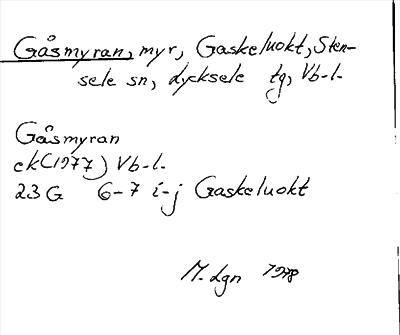 Gåsmyran, myr, Gaskeluokt, Sten-
sele sn, Lycksele tg, Vb-l.
Gåsmyran
ek(1977) Vb-l.
23 G 6-7 i-j Gaskeluokt
M. Lgn 1978